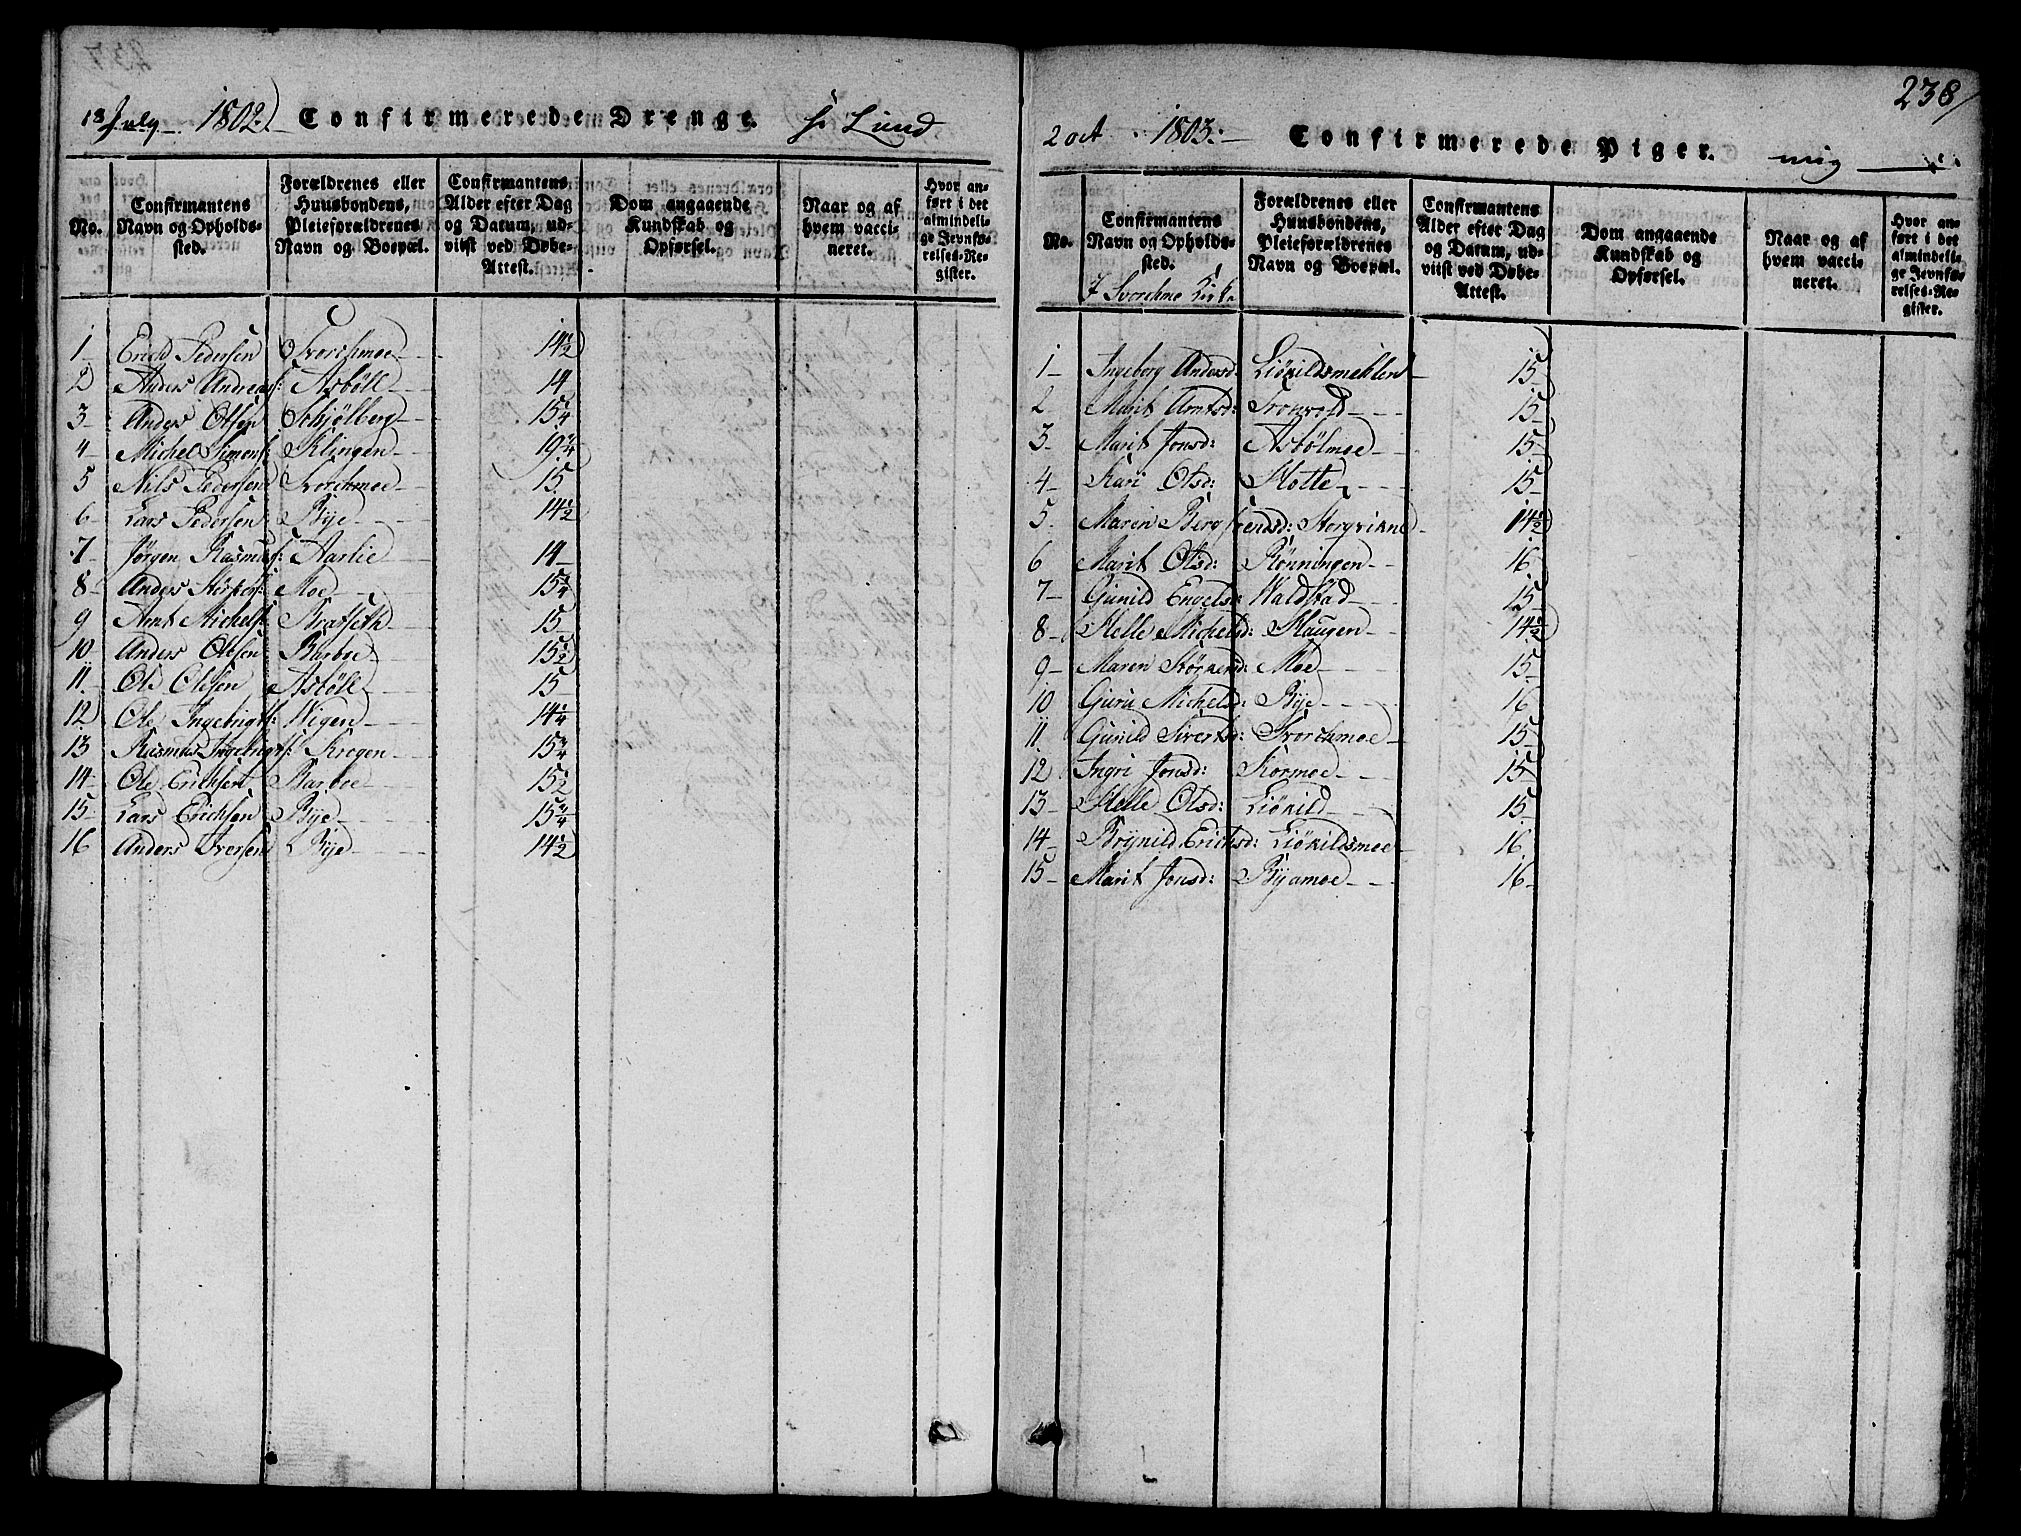 18 July 1802. Confirmerede Drenge. hr Lund
No.
Confirmantens Navn og Opholdssted.
Forældrenes eller Huusbondens, Pleieforældrenes Navn og Boepæl.
Confirmantens Alder efter Dag og Datum, udviist ved Døbe-Attest.
Dom angaaende Kundskab og Opførsel.
Naar og af hvem vaccineret.
Hvor anført i det almindelige Jevnførelses-Register.
1 Erich Pedersen Svorchmoe 14 1/2
2 Anders Andreas: Asbøll 14
3 Anders Olsen Schjølberg 15 1/4
4 Michel Simons: Klingen 19 3/4
5 Nils Pedersen Svorchmoe 15
6 Lars Pedersen Bye 14 1/2
7 Jørgen Rasmus: Aarlie 14
8 Anders Størkers: Moe 15 3/4
9 Arnt Michels: Kratseth 15
10 Anders Olsen Barboe 15 1/2
11 Ole Olsen Asbøll 15
12 Ole Ingebrigts: Wigen 14 1/4
13 Rasmus Ingebrigts: Kregen 15 3/4
14 Ole Erichsen Barboe 15 1/2
15 Lars Erichsen Bye 15 3/4
16 Anders Iversen Bye 14 1/2
238
2 oct 1803. Confirmerede Piger. mig
No.
Confirmantens Navn og Opholdssted.
Forældrenes eller Huusbondens, Pleieforældrenes Navn og Boepæl.
Confirmantens Alder efter Dag og Datum, udviist ved Døbe-Attest.
Dom angaaende Kundskab og Opførsel.
Naar og af hvem vaccineret.
Hvor anført i det almindelige Jevnførelses-Register.
I Svorchmo Kirke
1 Ingeborg Andersd: Liøkildsmehlen 15
2 Marit Arntsd: Tronvold 15
3 Marit Jonsd: Asbølmoe 15
4 Kari Olsd: Holte 15
5 Maren Bergsvendsd: Hergvikne 14 1/2
6 Marit Olsd: Rønningen 16
7 Gunild Engelsd: Waldstad 15
8 Helle Michelsd: Haugen 14 1/2
9 Maren Størkersd: Moe 15
10 Guru Michelsd: Bye 16
11 Gunild Sivertsd: Svorchmoe 15
12 Ingri Jonsd: Kormoe 15
13 Helle Olsd: Liøkild 15
14 Brynild Erichsd: Liøkildsmoe 16
15 Marit Jonsd: Byamoe 16